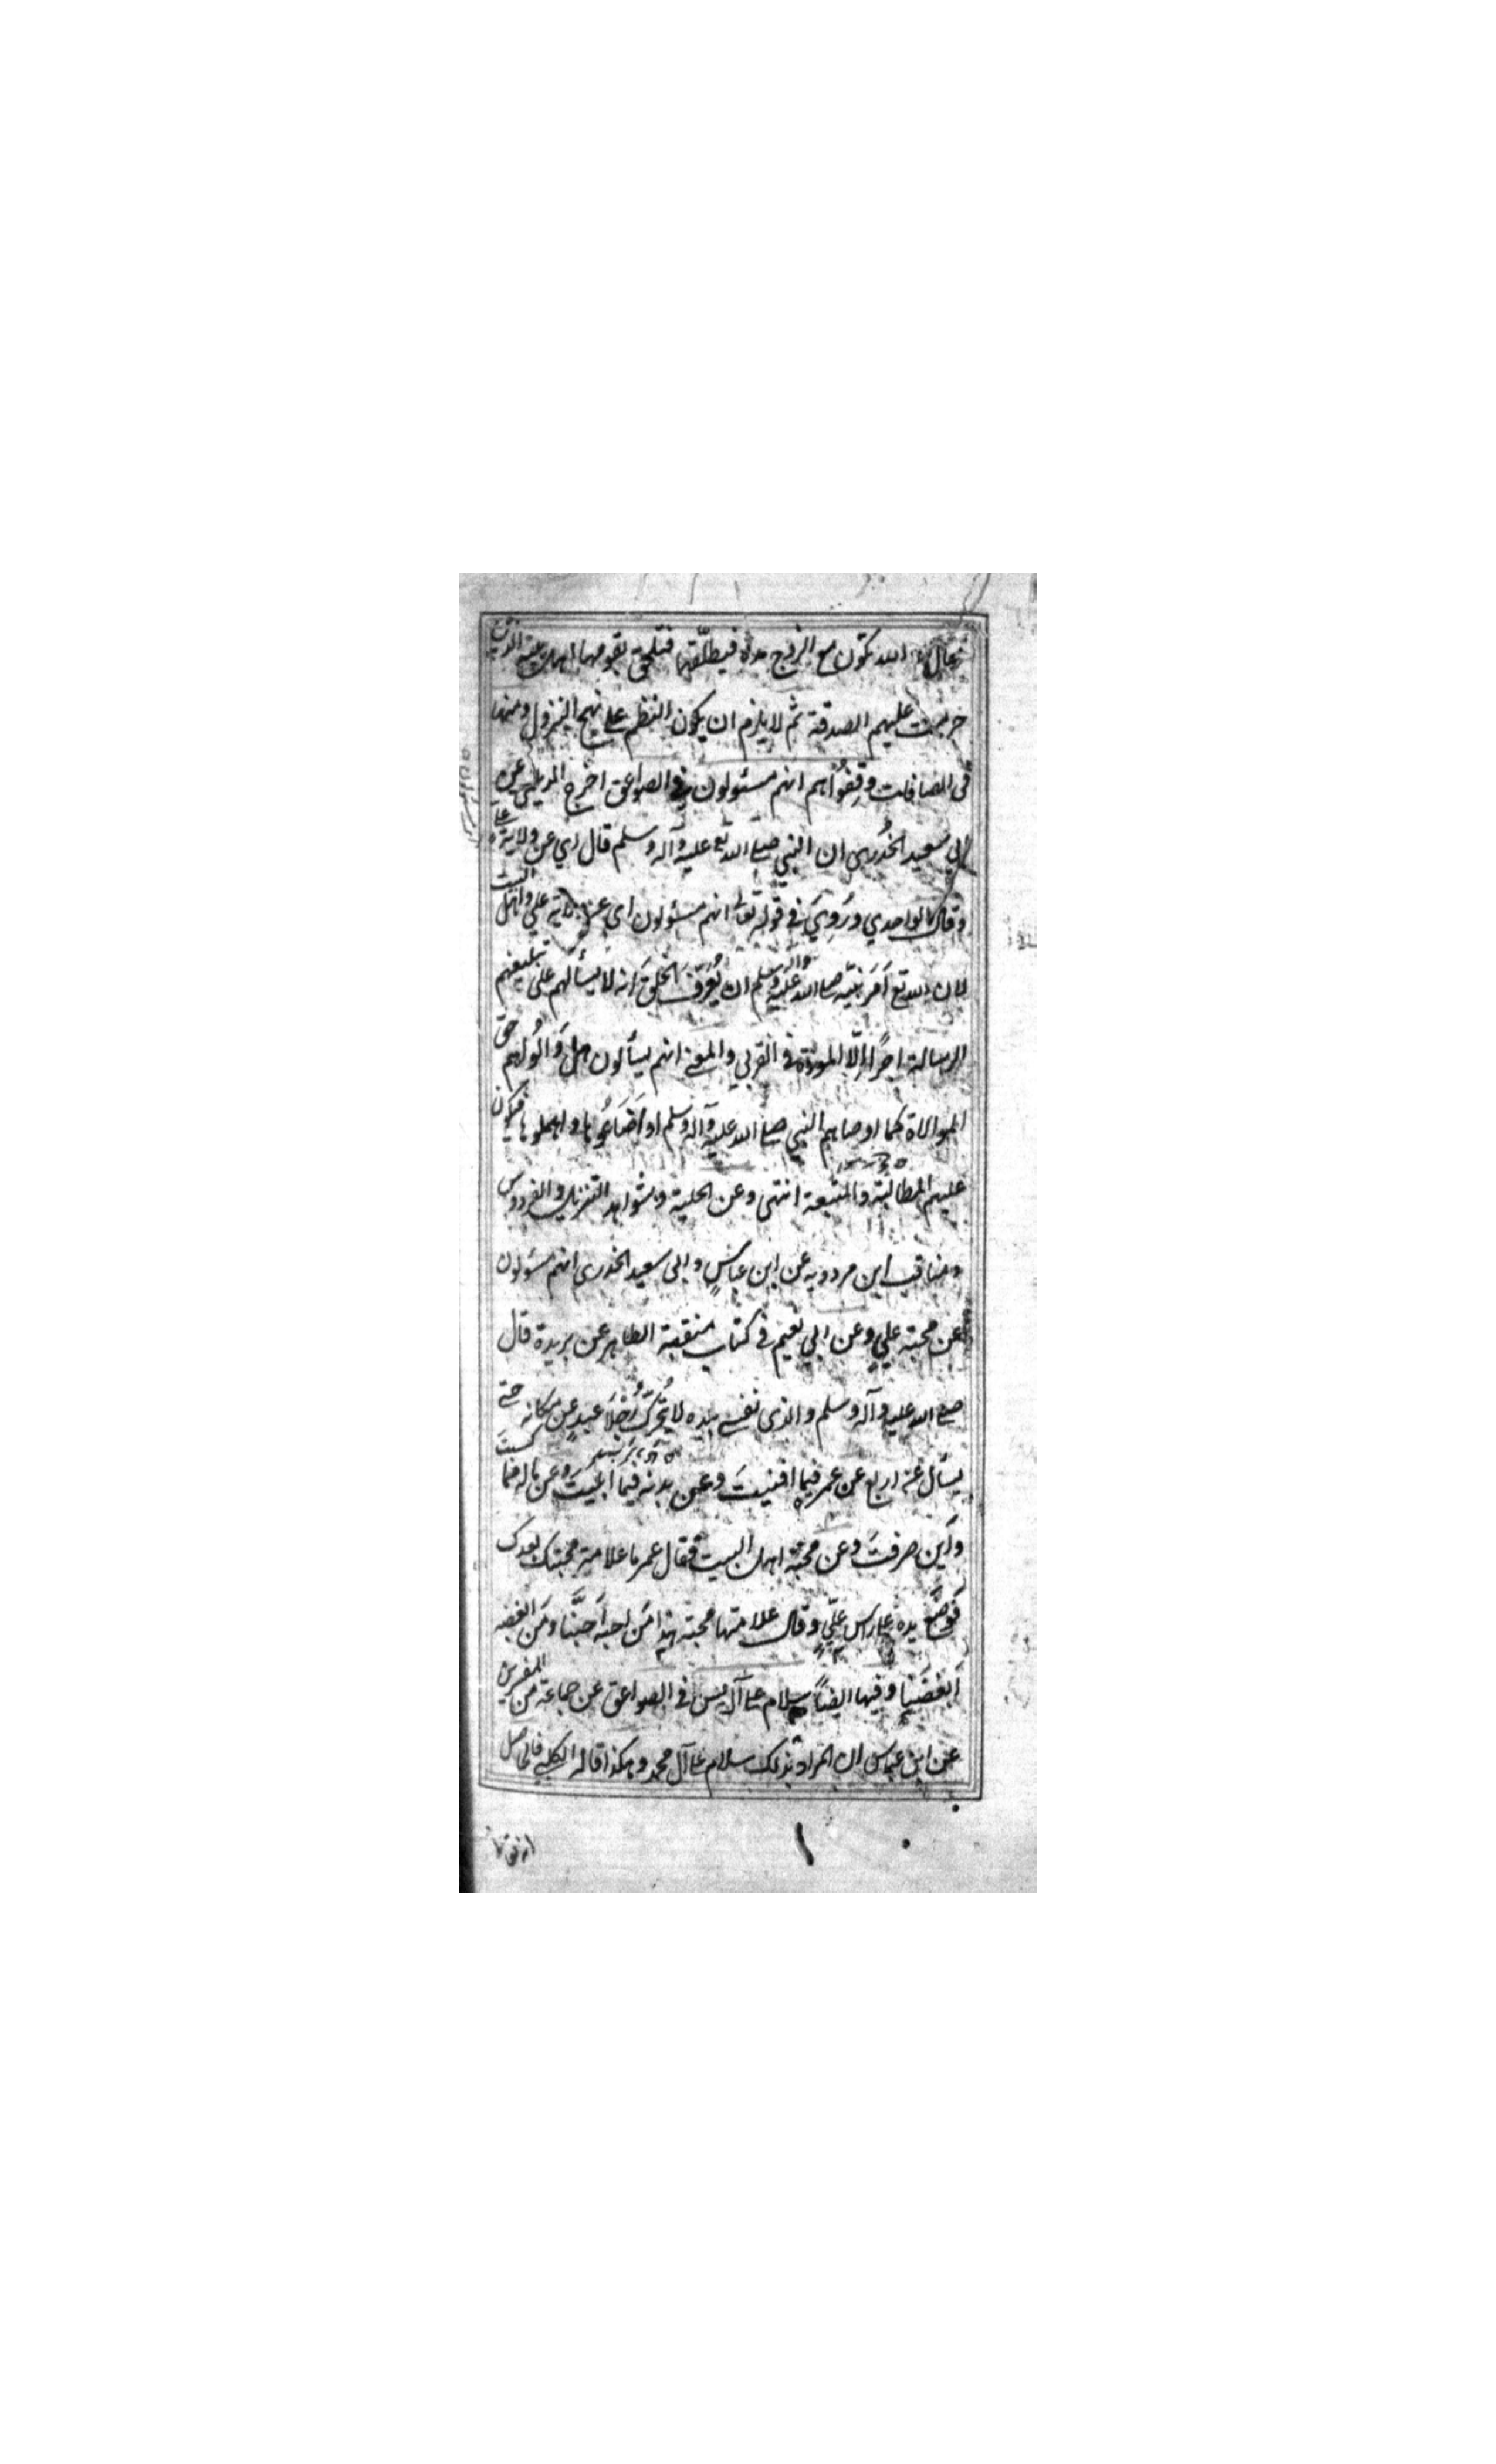 فقال لا والله تكون مع الزوج مدة فيطلّقها فتلحق بقومها اهل بيته الذين
حرمت عليهم الصدقة ثم لا يلزم ان يكون النظم على نهج النزول ومنها
فى الصافات وقِفُوْاهم انهم مسئولون فى الصواعق اخرج الديلمى عن
ابي سعيد الخُدرى ان النبي صلى الله تع عليه وآله وسلم قال اي عن ولاية على
وقال الواحدي ورُوِيَ في قوله تعالى انهم مسئولون اى عن ولاية علي واهل البيت
لان الله تع اَمَرَ نبيّه صلى الله عليه وآله وسلم ان يُعرِّفَ الخلقَ انه لا يسألهم على تبليغهم
الرسالة اجرًا إلّا المودة في القربي والمعنى انهم يسألون هل وَالُوهم حق
الموالاة كما اوصاهم النبي صلى الله عليه وآله وسلم او اَضَاعُوها واهملوها فيكون
عليهم المطالبة والتبعة انتهى وعن الحلية وشواهد التنزيل والفردوس
ومناقب ابن مردويه عن ابن عباسٍ وابى سعيد الخدرى انهم مسئولون
عن محبة علي وعن ابي نعيم في كتاب منقبة الطاهر عن بريدة قال
صلى الله عليه وآله وسلم والذى نفسى بيده لا يُحرّك رِجْلا عبدٍ عن مكانه حتى
يسأل عن اربع عن عمره فيما افنيتَ وعن بدنه فيما ابليتَ وعن ماله مما كسبت
واَين صرفتَ وعن محبّة اهل البيت فقال عمر ما علامة محبتك بعدك
فَوضع يده على راس عليٍّ وقال علامتها محبة هذا مَن احبه اَحَبَّنا ومَن ابغضه
اَبغضَنا وفيها ايضاً سلام على آل يس في الصواعق عن جماعة من المفسرين
عن ابن عباس ان المراد بذلك سلام على آل محمد وهكذا قاله الكلبى فالحاصل